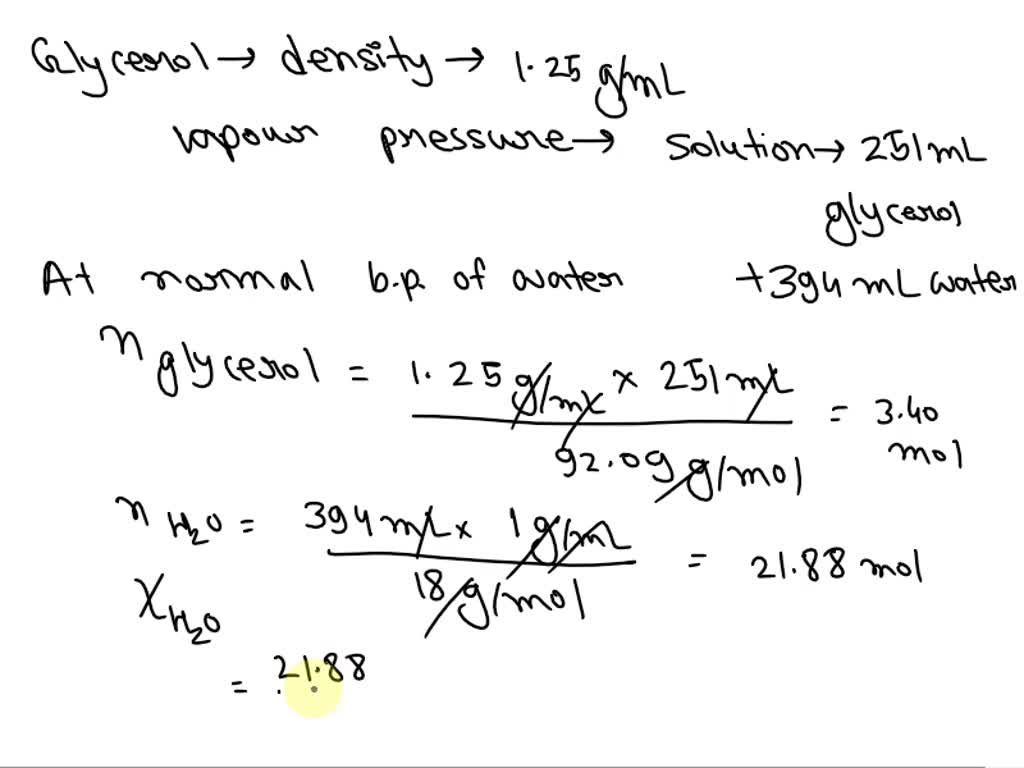 Glycerol → density → 1.25 g/mL
vapour pressure → solution → 251 mL
glycerol
At normal b.p. of water + 394 mL water
n glycerol = 1.25 g/mL x 251 mL / 92.09 g/mol = 3.40 mol
n H2O = 394 mL x 1 g/mL / 18 g/mol = 21.88 mol
X H2O
= 21.88